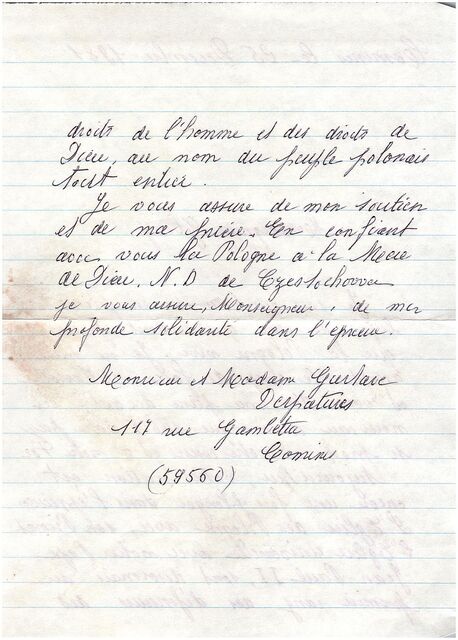 droits de l'homme et des droits de
Dieu, au nom du peuple polonais
tout entier.
Je vous assure de mon soutien
et de ma prière. En confiant
avec vous la Pologne à la Mère
de Dieu, N.D de Czestochowa
je vous assure, Monseigneur, de ma
profonde solidarité dans l'épreuve.
Monsieur et Madame Gustave
117 rue Gambetta
Comines
(59560)